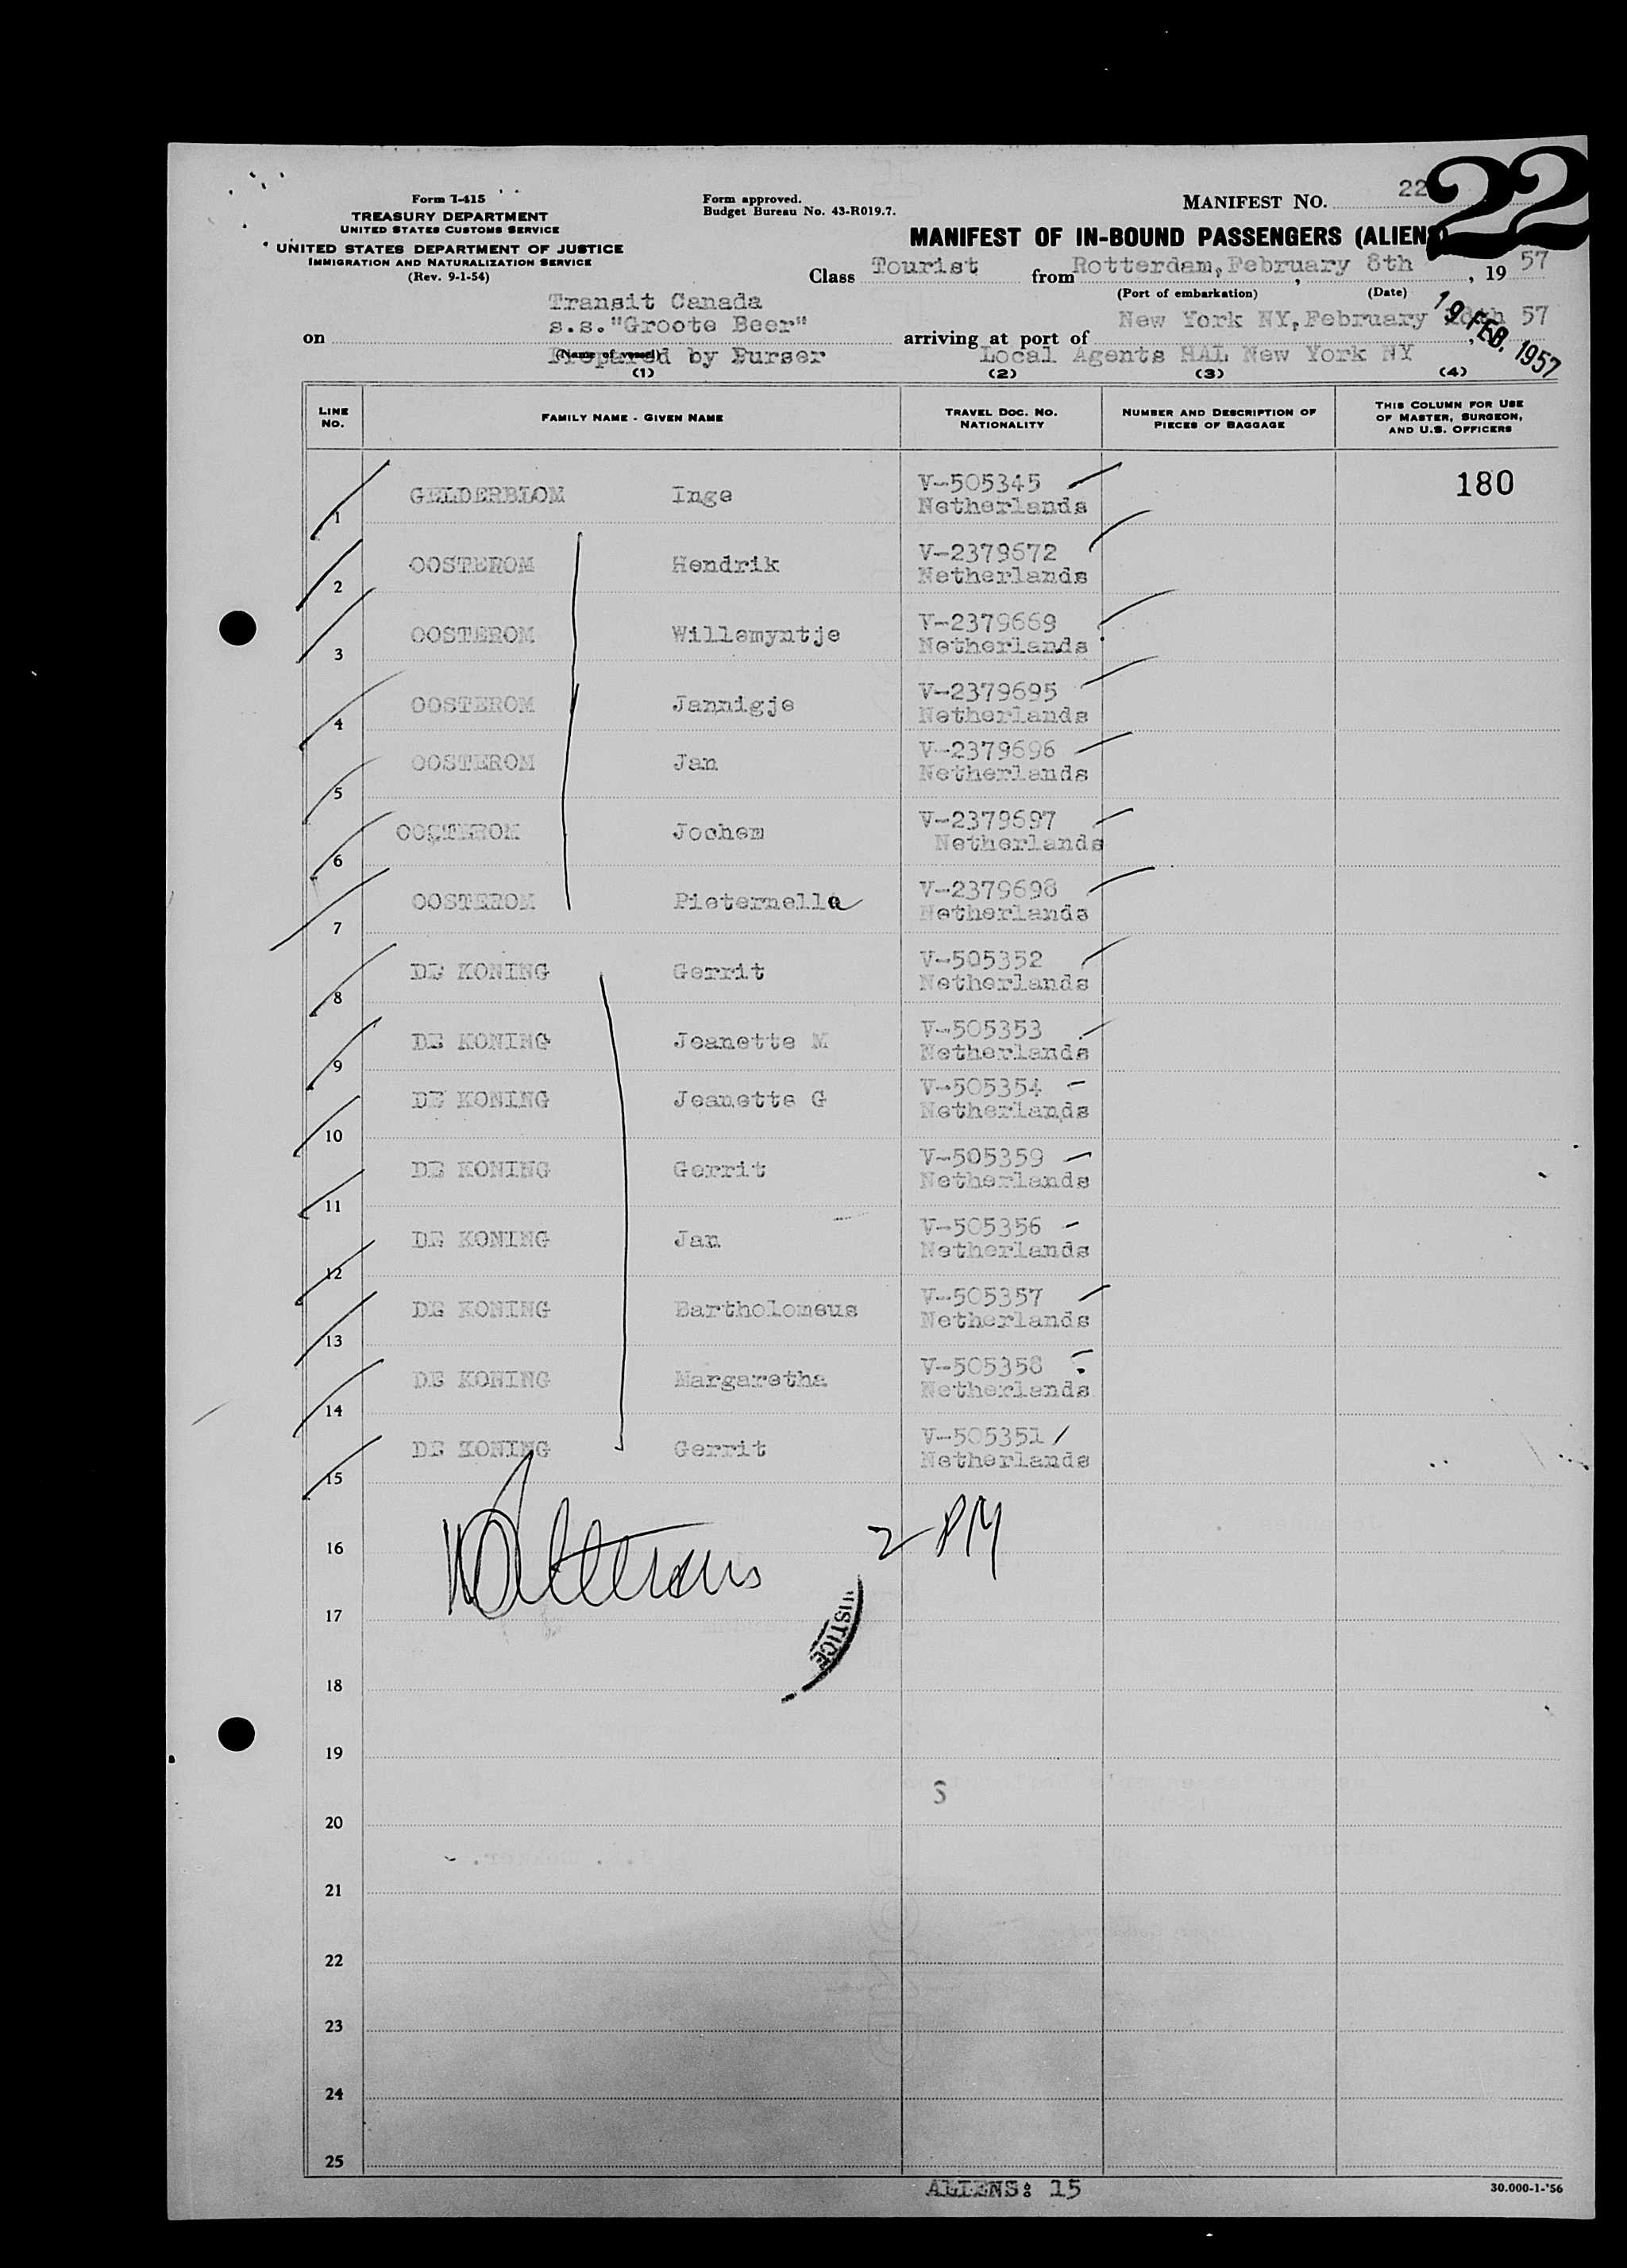 Form I-415
TREASURY DEPARTMENT
UNITED STATES CUSTOMS SERVICE
UNITED STATES DEPARTMENT OF JUSTICE
IMMIGRATION AND NATURALIZATION SERVICE
(Rev. 9-1-54)
Form approved.
Budget Bureau No. 43-R019.7.
MANIFEST NO. 22
22
MANIFEST OF IN-BOUND PASSENGERS (ALIENS)
Class Tourist from Rotterdam, February 8th, 19 57
(Port of embarkation) (Date)
Transit Canada
on s.s."Groote Beer" arriving at port of New York NY, February 57
19 FEB. 1957
(Name of vessel)
Prepared by Purser Local Agents HAL New York NY
(1) (2) (3) (4)
LINE NO. FAMILY NAME - GIVEN NAME TRAVEL DOC. NO. NATIONALITY NUMBER AND DESCRIPTION OF PIECES OF BAGGAGE THIS COLUMN FOR USE OF MASTER, SURGEON, AND U.S. OFFICERS
1 GELDERBLOM Inge V-505345 180
Netherlands
2 OOSTEROM Hendrik V-2379672
Netherlands
3 OOSTEROM Willemyntje V-2379669
Netherlands
4 OOSTEROM Jannigje V-2379695
Netherlands
5 OOSTEROM Jan V-2379696
Netherlands
6 OOSTEROM Jochem V-2379697
Netherlands
7 OOSTEROM Pieternella V-2379698
Netherlands
8 DE KONING Gerrit V-505352
Netherlands
9 DE KONING Jeanette M V-505353
Netherlands
10 DE KONING Jeanette G V-505354
Netherlands
11 DE KONING Gerrit V-505359
Netherlands
12 DE KONING Jan V-505356
Netherlands
13 DE KONING Bartholomeus V-505357
Netherlands
14 DE KONING Margaretha V-505358
Netherlands
15 DE KONING Gerrit V-505351
Netherlands
16 2 PM
17
USTICE
18
19
S
20
21
22
23
24
25
ALIENS: 15
30.000-1-'56